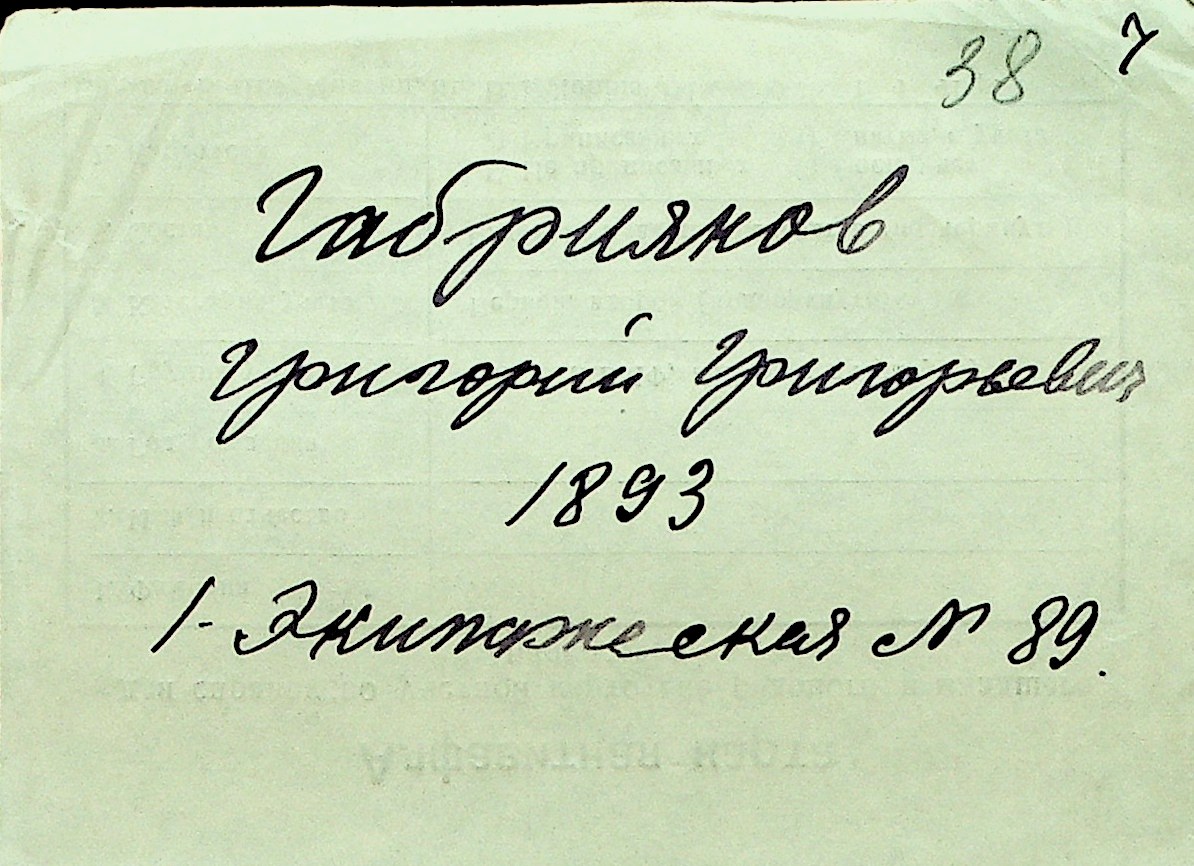 38 7
Габриянов
Григорий Григорьевич
1893
1-Экипажеская № 89.